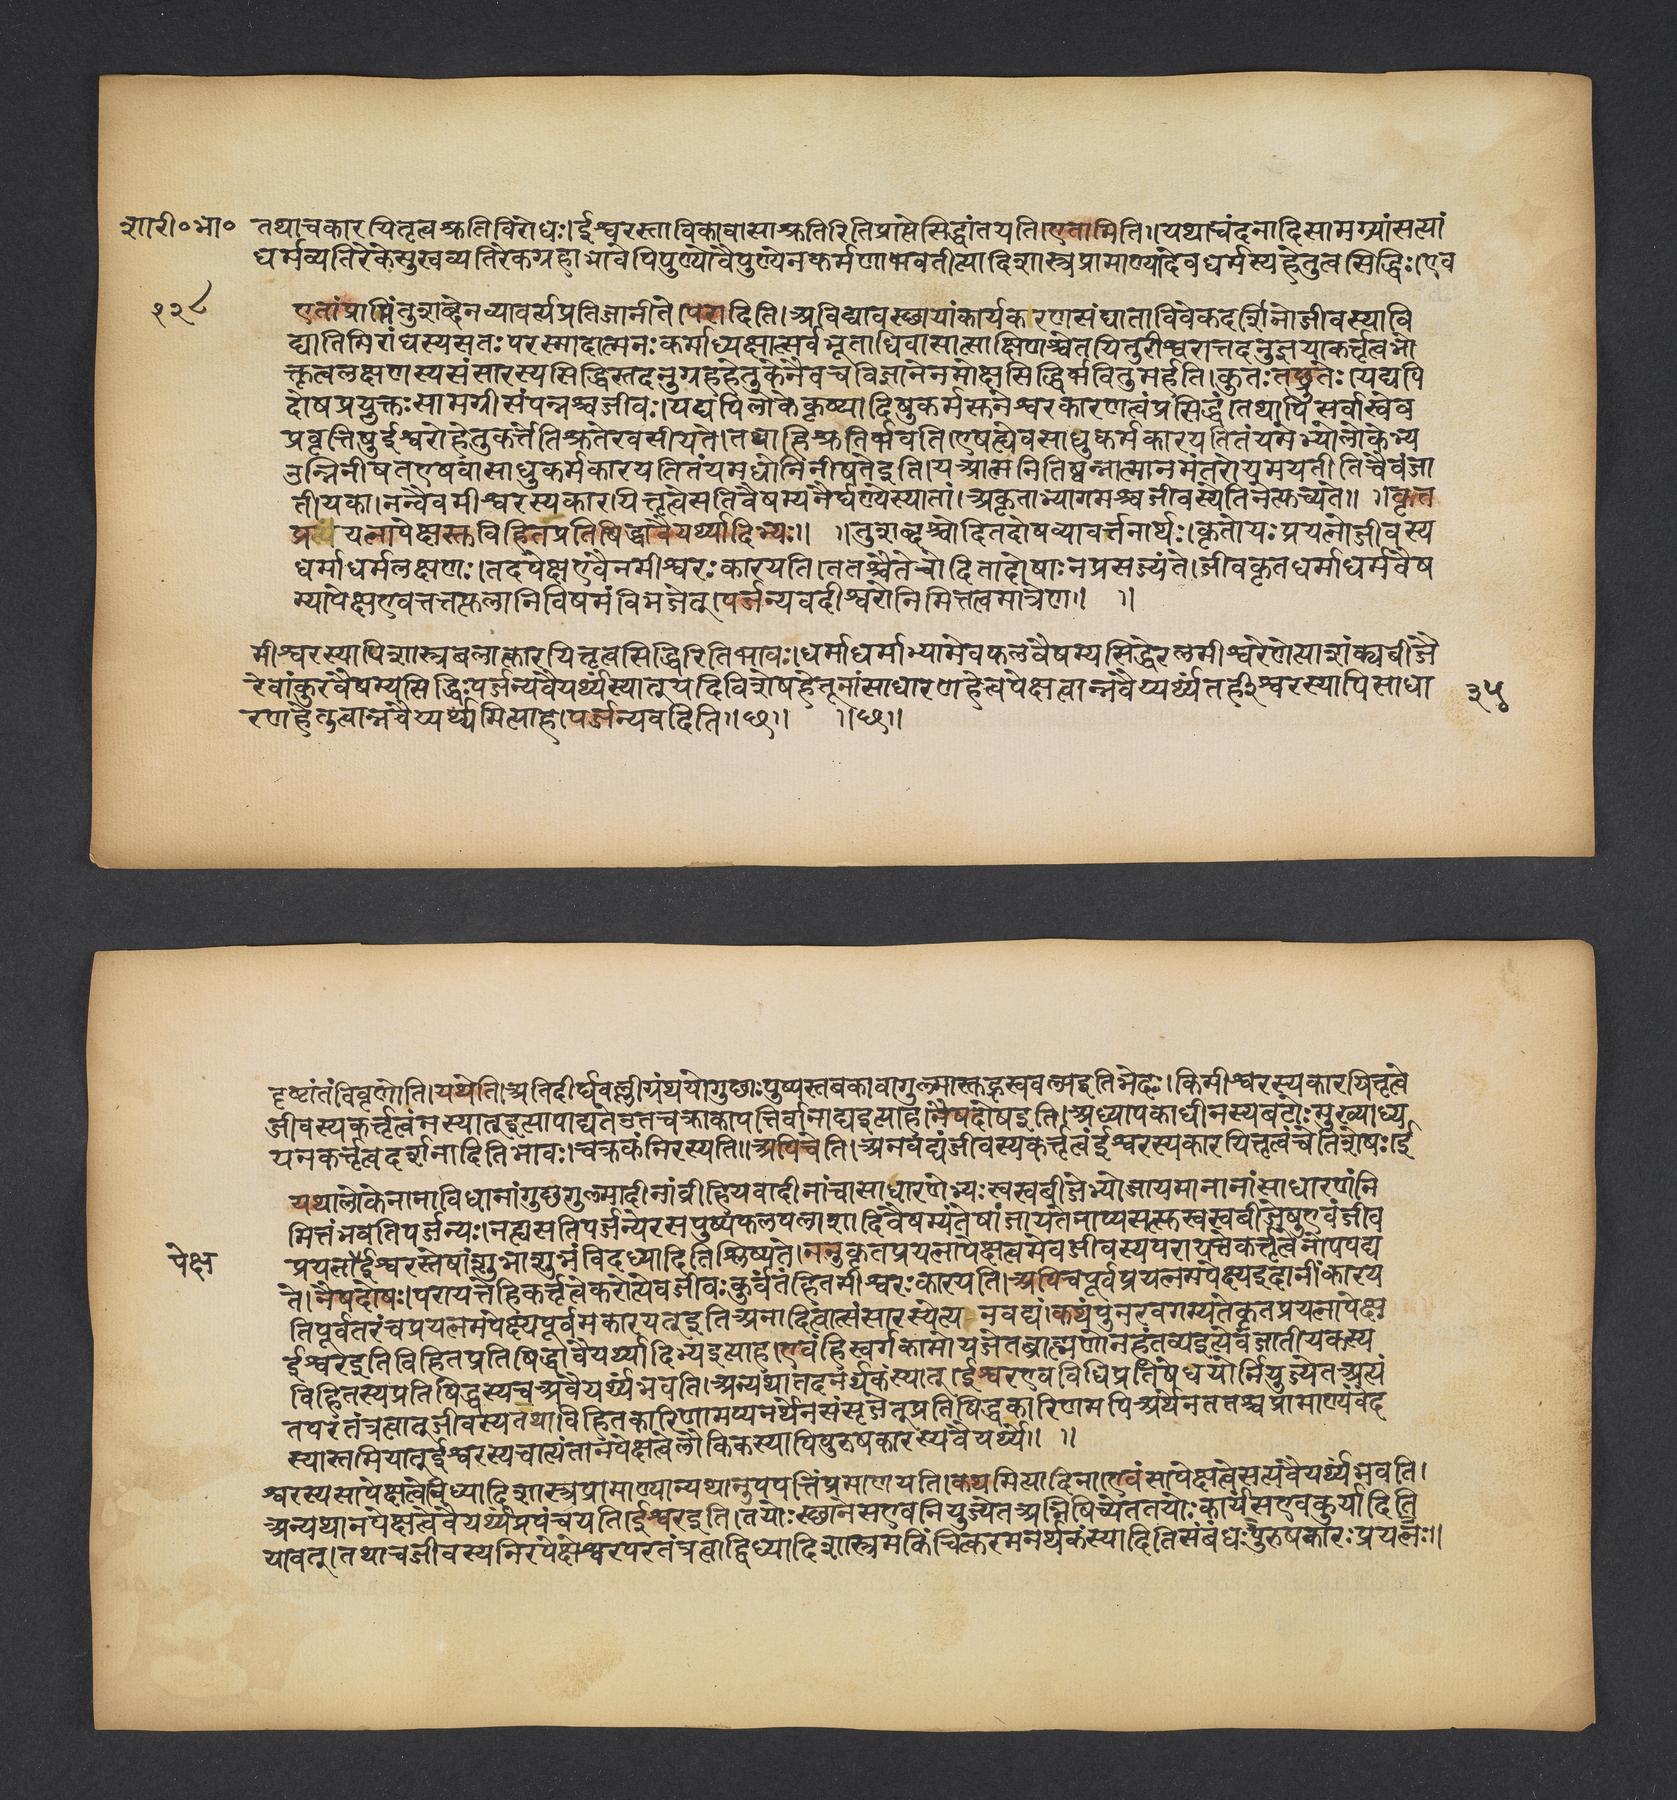 शारी॰भा॰ तथाचकारयितृत्वश्रुतिविरोधः।ईश्वरस्ताविकोवासाश्रुतिरितिप्राप्तेसिद्धांतयति।एतामिति।यथाचंदनादिसामग्र्यांसत्यां
धर्मव्यतिरेकेसुखव्यतिरेकग्रहाभावेपिपुण्योवैपुण्येनकर्मणाभवतीत्यादिशास्त्रप्रामाण्यादेवधर्मस्यहेतुत्वसिद्धिः।एव
१२८ एतांप्राप्तिंतुशब्देनव्यावर्त्यप्रतिजानीते।परादिति।अविद्यावस्छायांकार्यकरणसंघाताविवेकदर्शिनोजीवस्यावि
द्यातिमिरांधस्यसतःपरस्मादात्मनःकर्माध्यक्षात्सर्वभूताधिवासात्साक्षिणश्चेतयितुरीश्वरात्तदनुज्ञयाकर्त्तृत्वभो
क्तृत्वलक्षणस्यसंसारस्यसिद्धिस्तदनुग्रहहेतुकेनैवचविज्ञानेनमोक्षसिद्धिर्भवितुमर्हति।कुतःतछ्रुतेः।यद्यपि
दोषप्रयुक्तःसामग्रीसंपन्नश्चजीवः।यद्यपिलोकेकृष्यादिषुकर्मसुनेश्वरकारणत्वंप्रसिद्धं।तथापिसर्वास्वेव
प्रवृत्तिषुईश्वरोहेतुकर्त्तेतिश्रुतेरवसीयते।तथाहिश्रुतिर्भवति।एषह्येवसाधुकर्मकारयतितंयमेभ्योलोकेभ्य
उन्निनीषतेएषवासाधुकर्मकारयतितंयमधोनिनीषतेइति।यआत्मनितिष्ठन्नात्मानमंतरोयमयती।तिचैवंजा
तीयका।नन्वेवमीश्वरस्यकारयित्तृत्वेसतिवैषम्यनैर्घण्येस्यातां।अकृताभ्यागमश्चजीवस्येतिनेत्युच्यते॥ ।कृत
प्रयत्नापेक्षस्तुविहितप्रतिषिद्धावैयर्थ्यादिभ्यः॥ ।तुशब्दश्चोदितदोषव्यावर्त्तनार्थः।कृतोयःप्रयत्नोजीवस्य
धर्माधर्मलक्षणः।तदपेक्षएवैनमीश्वरःकारयति।ततश्चैतेचोदितादोषाःनप्रसज्यंते।जीवकृतधर्माधर्मवैष
म्यापेक्षएवतत्तत्फलानिविषमंविभजेत्।पर्जन्यवदीश्वरोनिमित्तत्वमात्रेण॥ ॥
मीश्वरस्यापिशास्त्रबलात्कारयित्तृत्वसिद्धिरितिभावः।धर्माधर्माभ्यामेवफलवैषम्यसिद्धेरलमीश्वरेणेत्याशंक्यबीजै
रेवांकुरवैषम्यसिद्धिःपर्जन्यवैयर्थ्यंस्यात्।यदिविशेषहेतूनांसाधारणहेत्वपेक्षत्वान्नवैय्यर्थ्यंतर्हीश्वरस्यापिसाधा ३५
रणहेतुत्वान्नवैय्यर्थ्यमित्याह।पर्जन्यवदिति॥छ॥ ॥छ॥
दृष्टांतंविवृणोति।यथेति।अतिदीर्घवल्लीग्रंथयोगुछाःपुष्पस्तबकावागुल्मास्तुह्रस्ववल्मइतिभेदः।किमीश्वरस्यकारयितृत्वे
जीवस्यकर्तृत्वंनस्यात्इत्यापाद्यतेउतचक्राकापत्तिर्वानाद्यइत्याह।नैषदोषइति।अध्यापकाधीनस्यबटोःमुख्याध्य
यनकर्त्तृत्वदर्शनादितिभावः।चक्रकंनिरस्यति॥अपिचेति।अनवद्यंजीवस्यकर्त्तृत्वंईश्वरस्यकारयित्तृत्वंचेतिशेषः।ई
यथालोकेनानाविधानांगुछगुल्मादीनांव्रीहियवादीनांचासाधारणेभ्यःस्वस्वबीजेभ्योजायमानानांसाधारणंनि
मित्तंभवतिपर्जन्यः।नह्यसतिपर्जन्येरसपुष्पफलपलाशादिवैषम्यंतेषांजायतेनाप्यसत्सुस्वस्वबीजेषुएवंजीव
पेक्ष प्रयत्नोईश्वरस्तेषांशुभाशुभंविदध्यादितिश्लिष्यते।ननुकृतप्रयत्नापेक्षत्वमेवजीवस्यपरायत्तेकर्त्तृत्वेनोपपद्य
ते।नैषदोषः।परायत्तेहिकर्त्तृत्वेकरोत्येवजीवःकुर्वंतंहितमीश्वरःकारयति।अपिचपूर्वप्रयत्नमपेक्ष्यइदानींकारय
तिपूर्वतरंचप्रयत्नमपेक्ष्यपूर्वमकारयत्इतिअनादित्वात्संसारस्येत्यनवद्यं।कथंपुनरवगम्यतेकृतप्रयत्नापेक्ष
ईश्वरइतिविहितप्रतिषिद्धावैयर्थ्यादिभ्यइत्याह।एवंहिस्वर्गकामोयजेतब्राह्मणोनहंतव्यइत्येवंजातीयकस्य
विहितस्यप्रतिषिद्धस्यचअवैयर्थ्यंभवति।अन्यथातदनर्थकंस्यात्।ईश्वरएवविधिप्रतिषेधयोर्नियुज्येतअत्यं
तपरतंत्रत्वात्जीवस्यतथाविहितकारिणामप्यनर्थेनसंसृजेत्प्रतिषिद्धकारिणमपिअर्थेनततश्चप्रामाण्यंवेद
स्यास्तमियात्ईश्वरस्यचात्यंतानपेक्षत्वेलौकिकस्यापिपुरुषकारस्यवैयर्थ्यं॥ ॥
श्वरस्यसापेक्षत्वेविध्यादिशास्त्रप्रामाण्यान्यथानुपपत्तिंप्रमाणयति।कथमित्यादिना।एवंसापेक्षत्वेसत्यवैयर्थ्यंभवति।
अन्यथानपेक्षत्वेवैयर्थ्यंप्रपंचयति।ईश्वरइति।तयोःस्छानेसएवनियुज्येतअभिषिच्येततयोःकार्यंसएवकुर्यादिति
यावत्।तथाचजीवस्यनिरपेक्षेश्वरपरतंत्रत्वाद्विध्यादिशास्त्रमकिंचित्करमनर्थकंस्यादितिसंबंधःपुरुषकारःप्रयत्नः॥